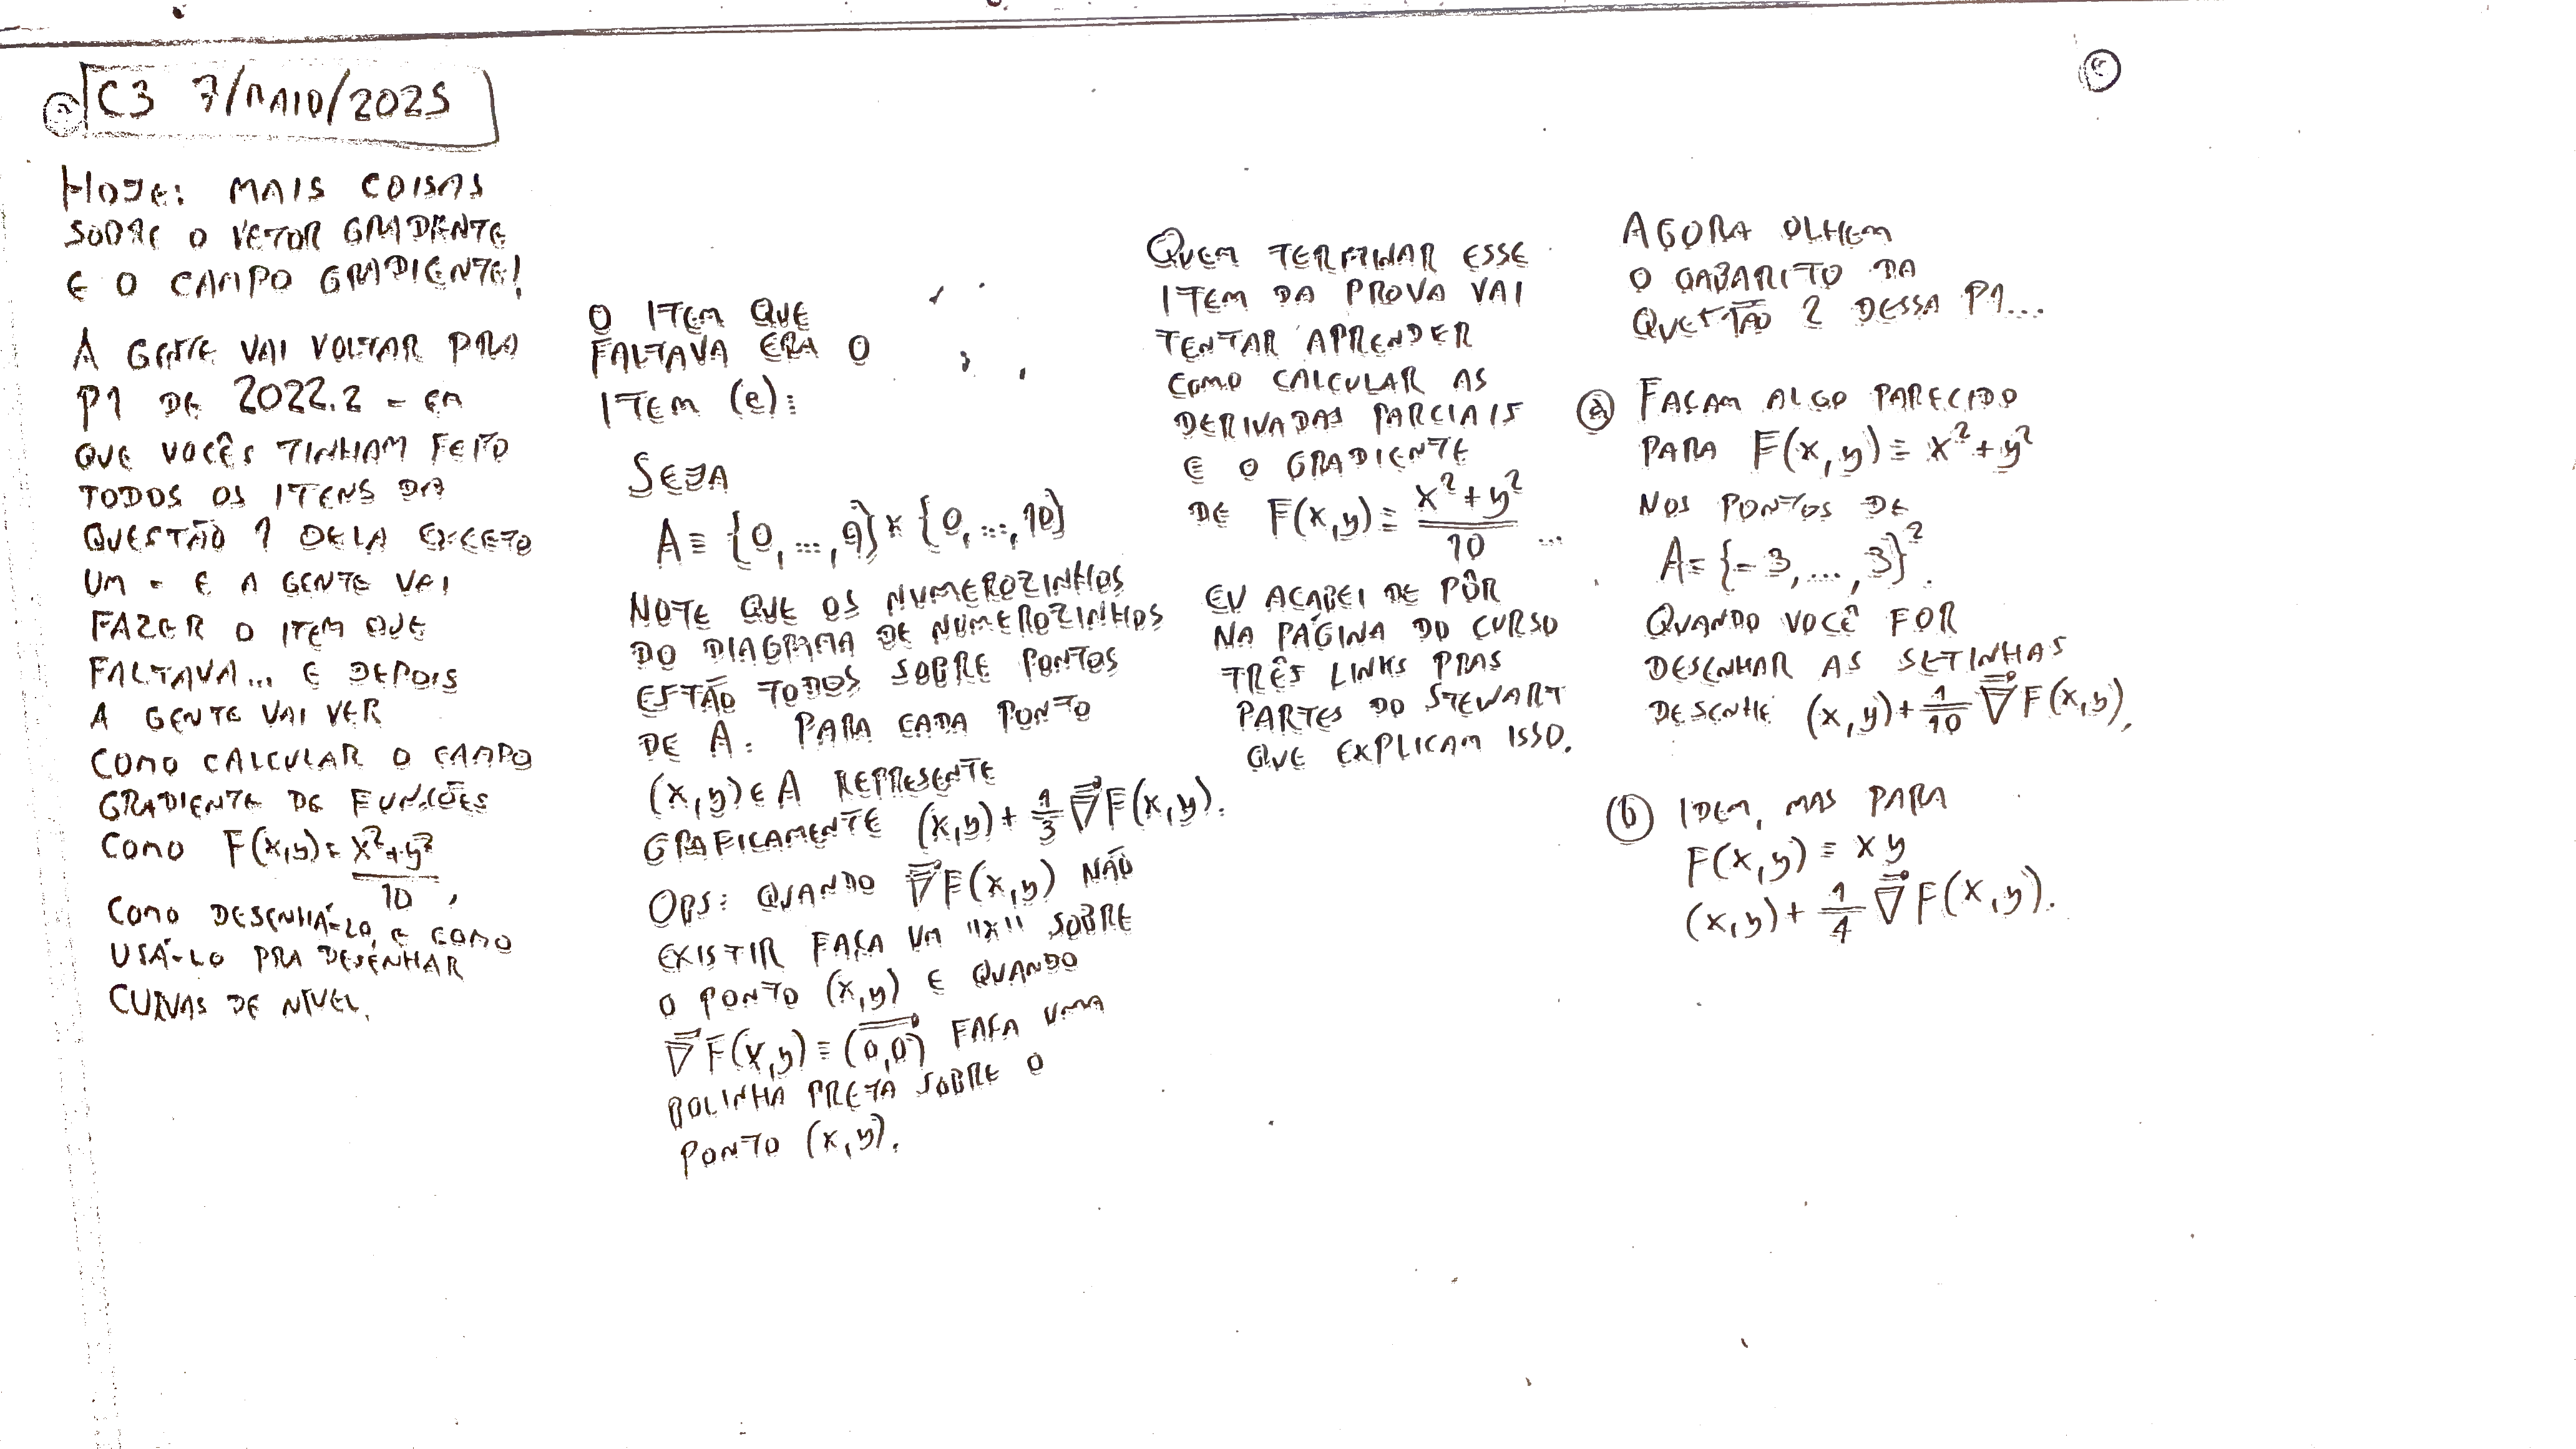 C3 7/MAIO/2025
HOJE: MAIS COISAS
SOBRE O VETOR GRADIENTE
E O CAMPO GRADIENTE!
A GENTE VAI VOLTAR PRA
P1 DE 2022.2 - EM
QUE VOCÊS TINHAM FEITO
TODOS OS ITENS DA
QUESTÃO 1 DELA EXCETO
UM - E A GENTE VAI
FAZER O ITEM QUE
FALTAVA... E DEPOIS
A GENTE VAI VER
COMO CALCULAR O CAMPO
GRADIENTE DE FUNÇÕES
COMO F(x,y) = (x²+y²)/10,
COMO DESENHÁ-LO, E COMO
USÁ-LO PRA DESENHAR
CURVAS DE NÍVEL.
O ITEM QUE
FALTAVA ERA O
ITEM (e):
SEJA
A = {0,...,9} × {0,...,10}
NOTE QUE OS NUMEROZINHOS
DO DIAGRAMA DE NUMEROZINHOS
ESTÃO TODOS SOBRE PONTOS
DE A. PARA CADA PONTO
(x,y) ∈ A REPRESENTE
GRAFICAMENTE (x,y) + 1/3 ∇⃗F(x,y).
OBS: QUANDO ∇⃗F(x,y) NÃO
EXISTIR FAÇA UM "X" SOBRE
O PONTO (x,y) E QUANDO
∇⃗F(x,y) = (0,0)⃗ FAÇA UMA
BOLINHA PRETA SOBRE O
PONTO (x,y).
QUEM TERMINAR ESSE
ITEM DA PROVA VAI
TENTAR APRENDER
COMO CALCULAR AS
DERIVADAS PARCIAIS
E O GRADIENTE
DE F(x,y) = (x²+y²)/10 ...
EU ACABEI DE PÔR
NA PÁGINA DO CURSO
TRÊS LINKS PRAS
PARTES DO STEWART
QUE EXPLICAM ISSO.
AGORA OLHEM
O GABARITO DA
QUESTÃO 2 DESSA P1...
ⓐ FAÇAM ALGO PARECIDO
PARA F(x,y) = x²+y²
NOS PONTOS DE
A = {-3,...,3}².
QUANDO VOCÊ FOR
DESENHAR AS SETINHAS
DESENHE (x,y) + 1/10 ∇⃗F(x,y).
ⓑ IDEM, MAS PARA
F(x,y) = xy
(x,y) + 1/4 ∇⃗F(x,y).